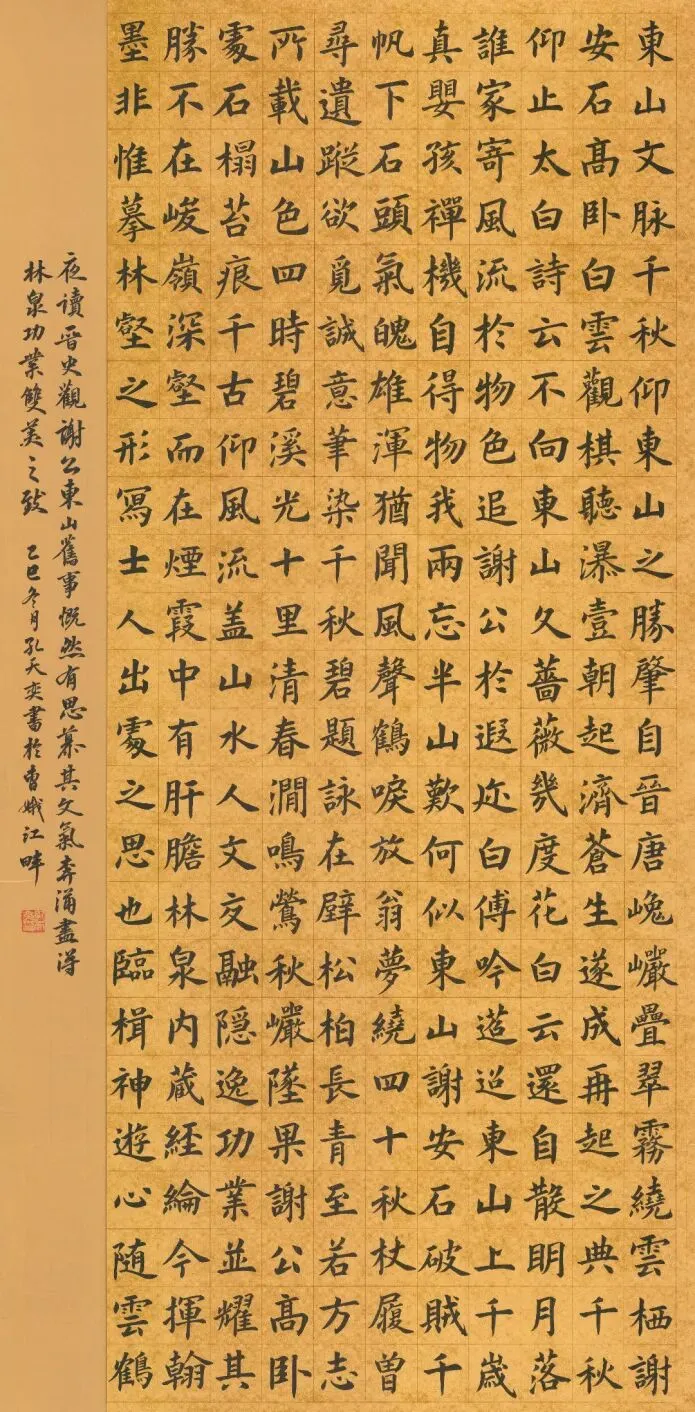 東山文脉千秋仰東山之勝肇自晉唐巉巗疊翠霧繞雲栖謝
安石髙卧白雲觀棋聽瀑壹朝起濟蒼生遂成再起之典千秋
仰止太白詩云不向東山久薔薇幾度花白云還自散明月落
誰家寄風流於物色追謝公於遐迩白傅吟逰迨東山上千歲
真嬰孩禪機自得物我兩忘半山歎何似東山謝安石破賊千
帆下石頭氣魄雄渾猶聞風聲鶴唳放翁夢繞四十秋杖履曾
尋遺蹤欲覓誠意筆染千秋碧題詠在壁松柏長青至若方志
所載山色四時碧溪光十里清春澗鳴鶯秋巗墜果謝公髙卧
處石榻苔痕千古仰風流盖山水人文交融隐逸功業並耀其
勝不在峻嶺深壑而在煙霞中有肝膽林泉内蔵經綸今揮翰
墨非惟摹林壑之形寫士人出處之思也臨楫神遊心随雲鶴
夜讀晉史觀謝公東山舊事慨然有思慕其文氣奔涌盡得
林泉功業雙美之致 乙巳冬月孔天奕書於曹娥江畔